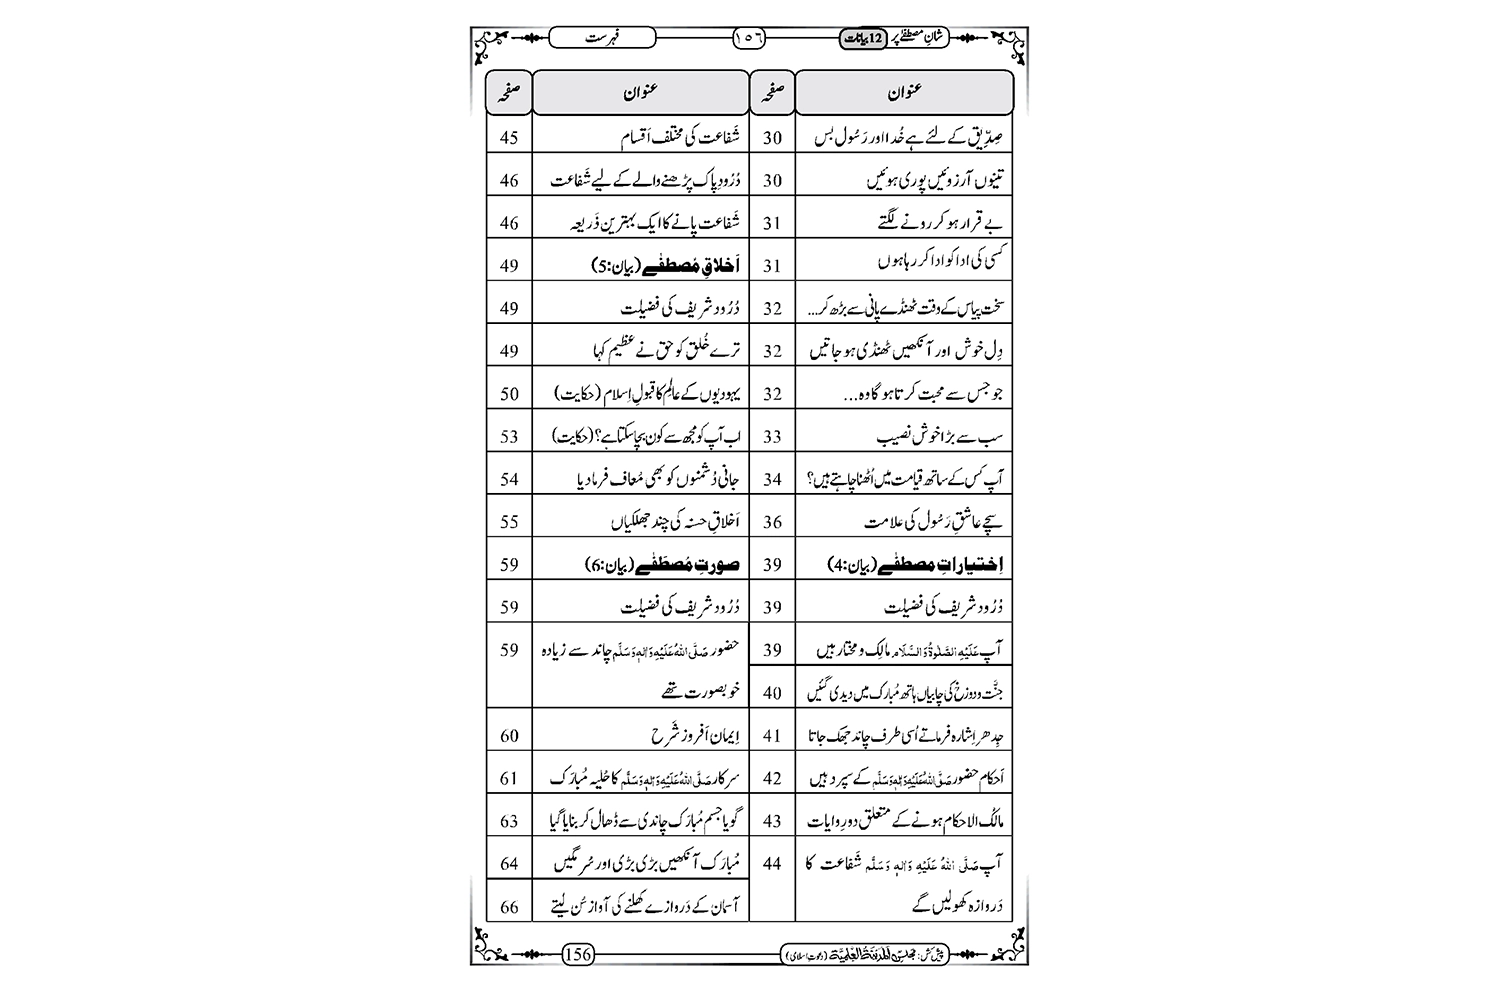 شانِ مصطفےٰ پر 12 بیانات
١٥٦
فہرست
عنوان صفحہ
صِدِّیق کے لئے ہے خُدا اور رَسُول بس 30
تینوں آرزوئیں پوری ہوئیں 30
بے قرار ہو کر رونے لگتے 31
کسی کی ادا کو ادا کر رہا ہوں 31
سخت پیاس کے وقت ٹھنڈے پانی سے بڑھ کر... 32
دِل خوش اور آنکھیں ٹھنڈی ہو جاتیں 32
جو جس سے محبت کرتا ہو گا وہ... 32
سب سے بڑا خوش نصیب 33
آپ کس کے ساتھ قیامت میں اُٹھنا چاہتے ہیں؟ 34
سچے عاشقِ رَسُول کی علامت 36
اِختیاراتِ مصطفٰے (بیان:4) 39
دُرُود شریف کی فضیلت 39
آپ عَلَیْہِ الصَّلٰوۃُ وَالسَّلَام مالِک و مختار ہیں 39
جنَّت و دوزخ کی چابیاں ہاتھ مُبارک میں دیدی گئیں 40
جِدھر اِشارہ فرماتے اُسی طرف چاند جھک جاتا 41
اَحکام حضور صَلَّی اللہُ عَلَیْہِ وَاٰلِہٖ وَسَلَّم کے سپرد ہیں 42
مالکُ الاحکام ہونے کے متعلق دو رِوایات 43
آپ صَلَّی اللہُ عَلَیْہِ وَاٰلِہٖ وَسَلَّم شَفاعت کا 44
دَروازہ کھولیں گے
عنوان صفحہ
شَفاعت کی مختلف اَقسام 45
دُرُودِ پاک پڑھنے والے کے لیے شَفاعت 46
شَفاعت پانے کا ایک بہترین ذَریعہ 46
اَخلاقِ مُصطفٰے (بیان:5) 49
دُرُود شریف کی فضیلت 49
ترے خُلق کو حق نے عظیم کہا 49
یہودیوں کے عالِم کا قبولِ اِسلام (حکایت) 50
اب آپ کو مجھ سے کون بچا سکتا ہے؟ (حکایت) 53
جانی دُشمنوں کو بھی مُعاف فرما دیا 54
اَخلاقِ حسنہ کی چند جھلکیاں 55
صورتِ مُصطَفٰے (بیان:6) 59
دُرُود شریف کی فضیلت 59
حضور صَلَّی اللہُ عَلَیْہِ وَاٰلِہٖ وَسَلَّم چاند سے زیادہ 59
خوبصورت تھے
اِیمان اَفروز شَرح 60
سرکار صَلَّی اللہُ عَلَیْہِ وَاٰلِہٖ وَسَلَّم کا حُلیہ مُبارَک 61
گویا جسم مُبارَک چاندی سے ڈھال کر بنایا گیا 63
مُبارَک آنکھیں بڑی بڑی اور سُرمگیں 64
آسمان کے دَروازے کھلنے کی آواز سُن لیتے 66
پیش کش: مجلس اَلْمَدِیْنَۃُ الْعِلْمِیَّۃ (دعوتِ اسلامی)
156